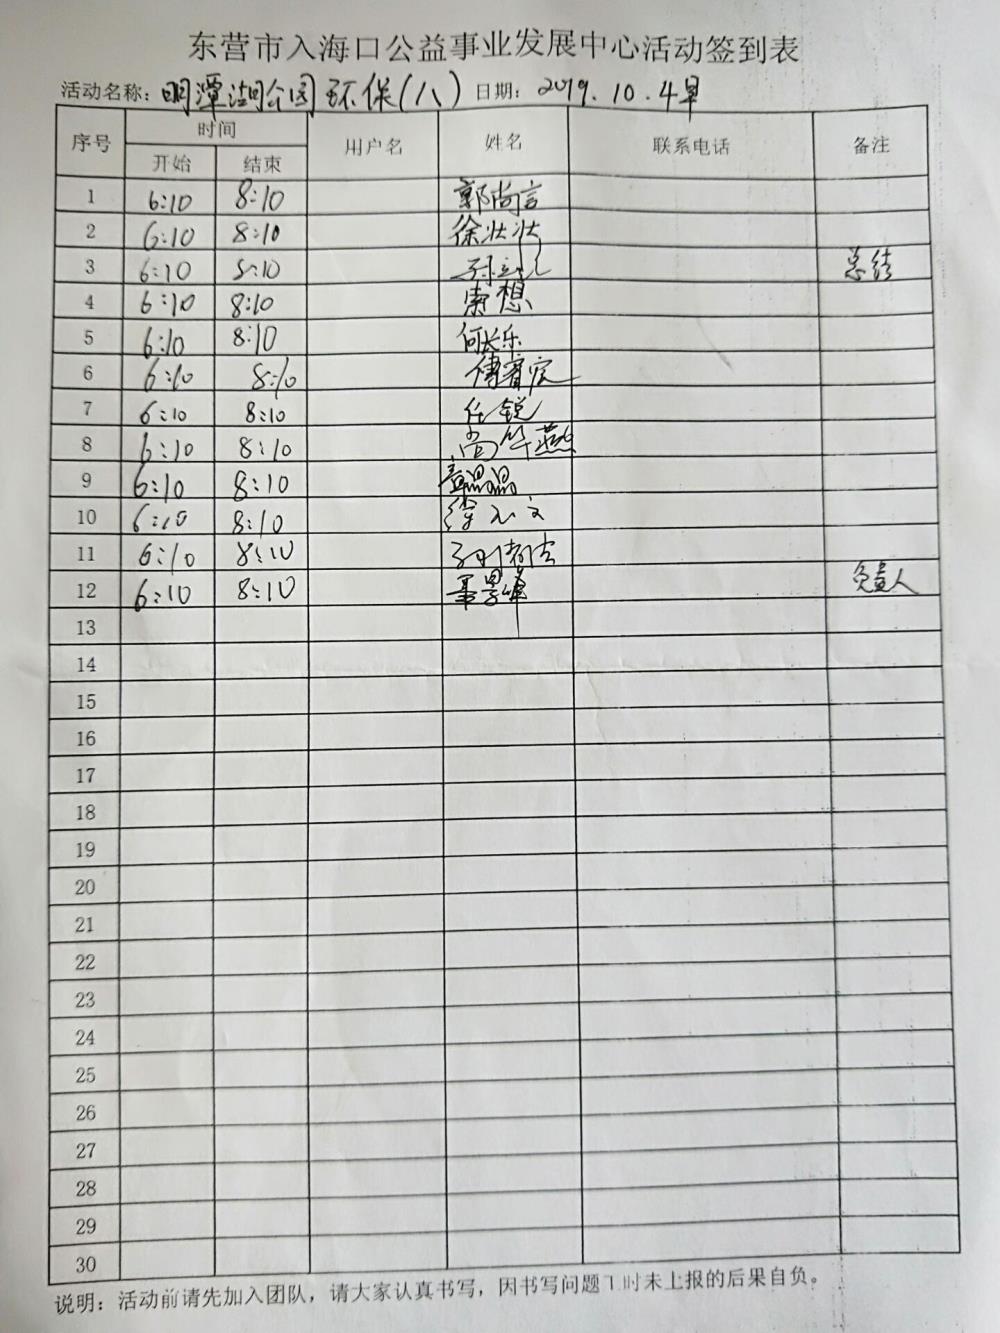 东营市入海口公益事业发展中心活动签到表
活动名称：明潭湖公园环保（八） 日期：2019.10.4早
序号 时间 用户名 姓名 联系电话 备注
开始 结束
1 6:10 8:10 郭尚言
2 6:10 8:10 徐壮壮
3 6:10 8:10 总结
4 6:10 8:10 索想
5 6:10 8:10 何长乐
6 6:10 8:10
7 6:10 8:10 任锐
8 6:10 8:10 尚华燕
9 6:10 8:10
10 6:10 8:10
11 6:10 8:10
12 6:10 8:10 负责人
13
14
15
16
17
18
19
20
21
22
23
24
25
26
27
28
29
30
说明：活动前请先加入团队，请大家认真书写，因书写问题工时未上报的后果自负。